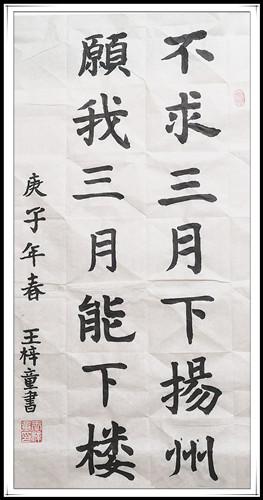 不求三月下揚州
願我三月能下楼
庚子年春 王梓童書